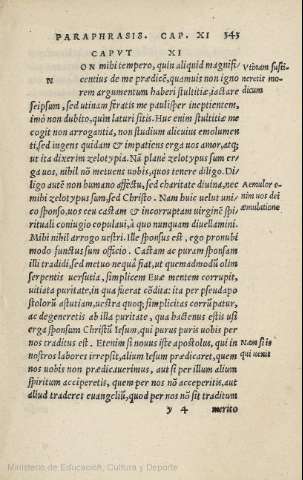 PARAPHRASIS. CAP. XI 345
CAPVT XI
NON mihi tempero, quin aliquid magnifi/
centius de me prædicē, quamuis non igno
rem argumentum haberi stultitiæ iactare
seipsum, sed utinam feratis me paulisper ineptientem,
imò non dubito, quin laturi sitis. Huc enim stultitiæ me
cogit non arrogantia, non studium alicuius emolumen
ti, sed ingens quidam & impatiens erga uos amor, atq;
ut ita dixerim zelotypia. Nā planè zelotypus sum er/
ga uos, nihil nō metuens uobis, quos tenere diligo. Di
ligo autē non humano affectu, sed charitate diuina, nec
mihi zelotypus sum, sed Christo. Nam huic uelut uni/
co sponso, uos ceu castam & incorruptam uirginē spi/
rituali coniugio copulaui, à quo nunquam diuellamini.
Mihi nihil arrogo uestri. Ille sponsus est, ego pronubi
modo functus sum officio. Castam ac puram sponsam
illi tradidi, sed metuo nequā fiat, ut quemadmodū olim
serpentis uersutia, simplicem Euæ mentem corrupit,
uitiata puritate, in qua fuerat cōdita: ita per pseudapo
stolorū astutiam, uestra quoq; simplicitas corrūpatur,
ac degeneretis ab illa puritate, qua hactenus estis usi
erga sponsum Christū Iesum, qui purus puris uobis per
nos traditus est. Etenim si nouus iste apostolus, qui in
nostros labores irrepsit, alium Iesum prædicaret, quem
nos uobis non prædicauerimus, aut si per illum alium
spiritum acciperetis, quem per nos nō acceperitis, aut
aliud traderet euangeliū, quod per nos nō sit traditum
y 4 merito
Vtinam susti/
neretis mo/
dicum
Aemulor e/
nim uos dei
æmulatione
Nam si is
qui uenit
Ministerio de Educación, Cultura y Deporte